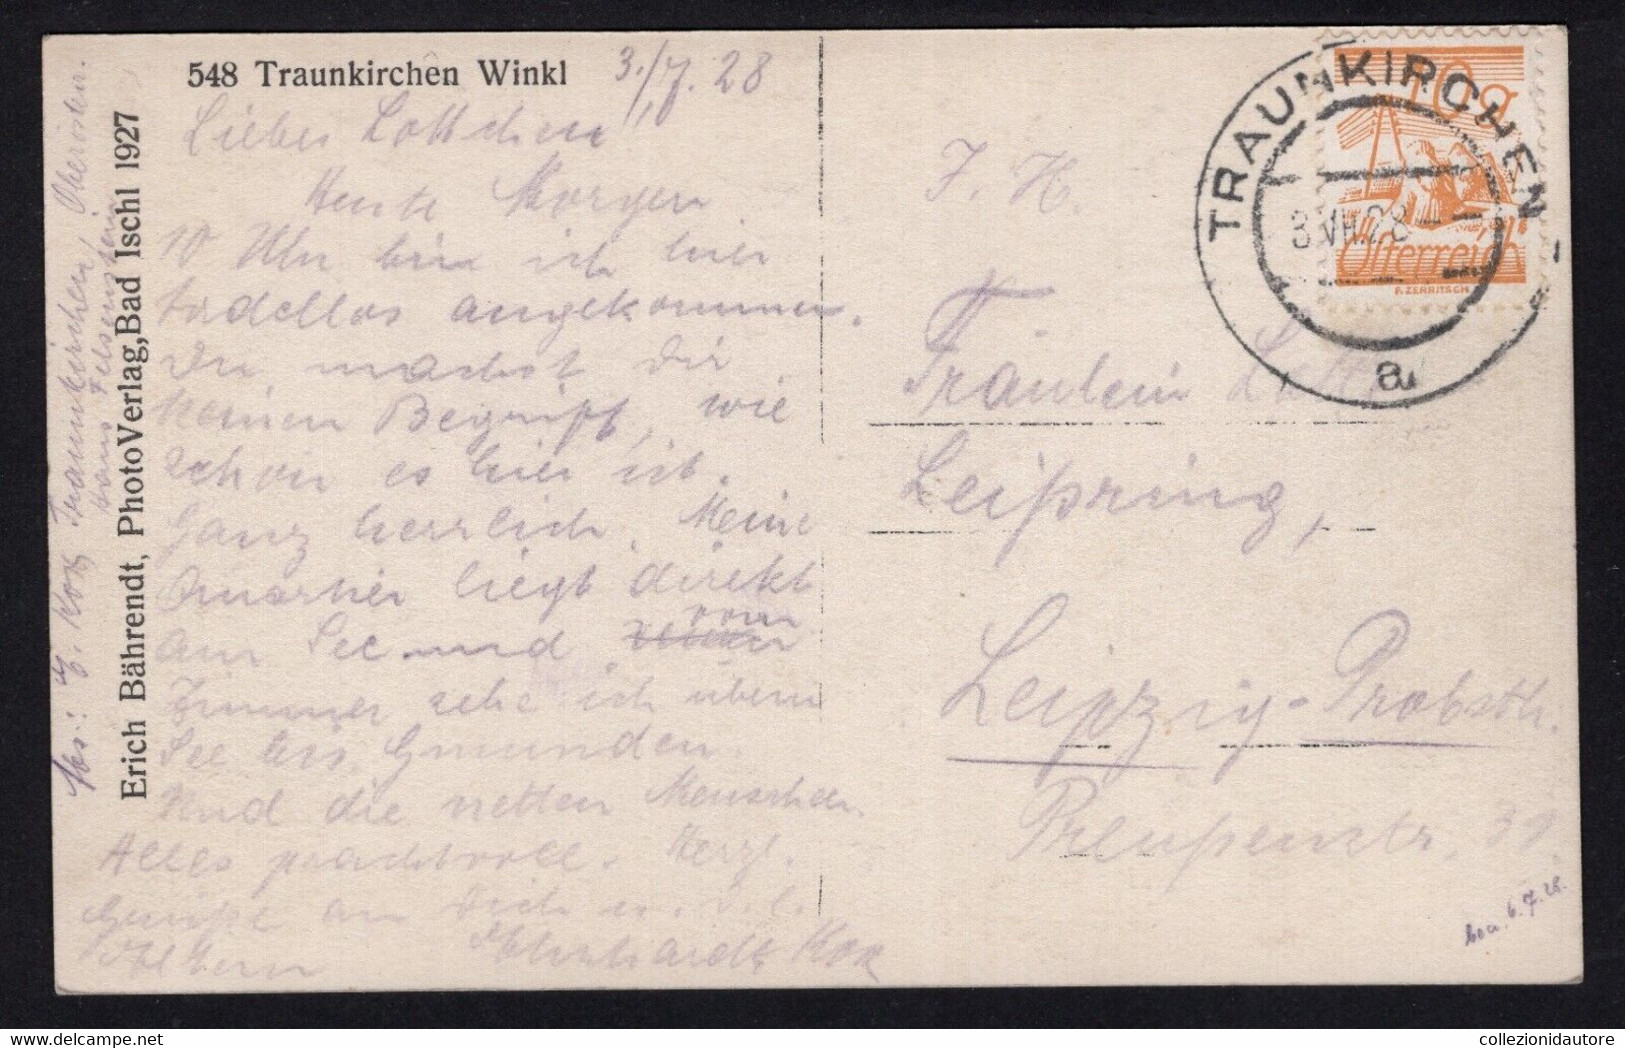 548 Traunkirchen Winkl
3./7.28
Liebes Lottchen
Heute Morgen
10 Uhr bin ich hier
tadellos angekommen.
Du machst dir
keinen Begriff, wie
schön es hier ist.
Ganz herrlich. Meine
Quartier liegt direkt
am See und vom
Zimmer sehe ich übern
See bis Gmunden.
Und die netten Menschen.
Alles prachtvoll. Herzl.
Grüße an Dich u. d. l.
Eltern
Ehrhardt Kox
Erich Bährendt, PhotoVerlag, Bad Ischl 1927
Abs.: E. Kox Traunkirchen, Oberösterr.
Haus Felsenstein
TRAUNKIRCHEN
3.VII.28
a
10g
Österreich
F.ZERRITSCH
F. H.
Fräulein Lotte
Leipzig,
Leipzig-Probsth.
Preußenstr. 31
bea. 6.7.28.
collezionidautore - www.delcampe.net